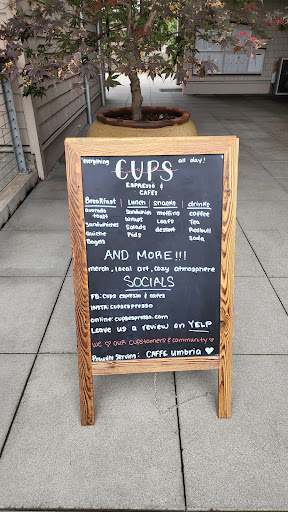 everything CUPS all day!
ESPRESSO &
CAFÉ
Breakfast | Lunch | snacks | drinks
avocado toast
Sandwiches
Quiche
Bagels
Sandwich
Wraps
Salads
Kids
muffins
Loafs
dessert
coffee
Tea
Redbull
Soda
AND MORE!!!
merch, local art, cozy atmosphere
SOCIALS
FB: Cups espresso & café
INSTA: cupsespresso
online: cupsespresso.com
Leave us a review on YELP
We ♡ our customers & community ♡
Proudly Serving: CAFFE umbria ♡